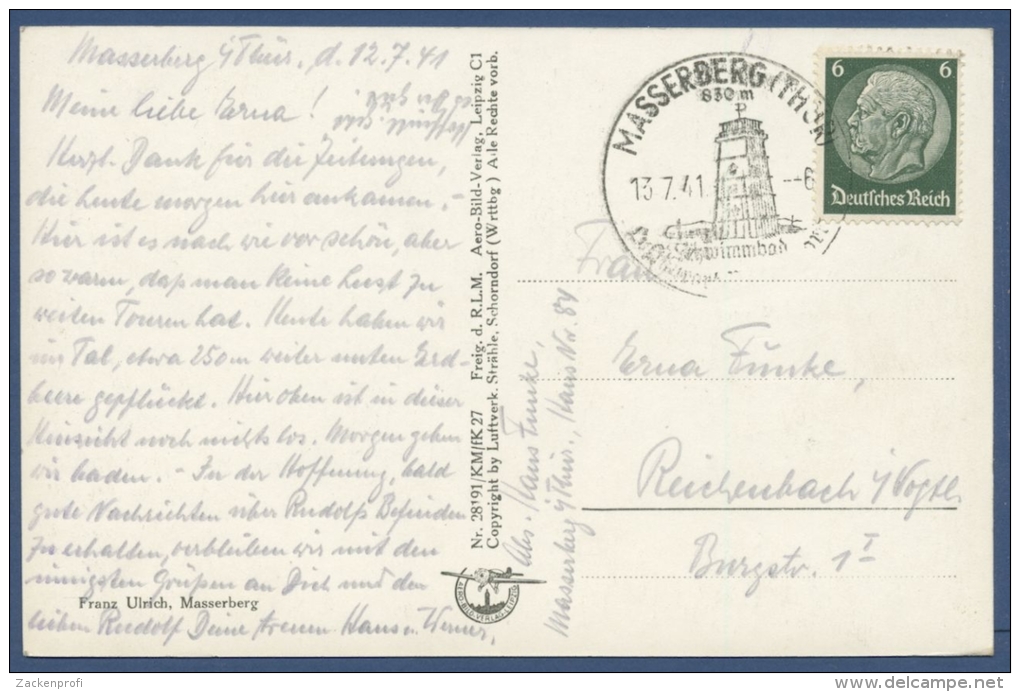 Masserberg i/Thür., d. 12.7.41
Meine liebe Erna!
Herzl. Dank für die Zeitungen,
die heute morgen hier ankamen. -
Hier ist es nach wie vor schön, aber
so warm, daß man keine Lust zu
weiten Touren hat. Heute haben wir
im Tal, etwa 250m weiter unten Erd-
beere gepflückt. Hier oben ist in dieser
Hinsicht noch nichts los. Morgen gehen
wir baden. - In der Hoffnung, bald
gute Nachrichten über Rudolfs Befinden
zu erhalten, verbleiben wir mit den
innigsten Grüßen an Dich und den
Franz Ulrich, Masserberg
lieben Rudolf Deine treuen Hans u. Werner,
Nr. 28191/KM/fK 27 Freig. d. R.L.M. Aero-Bild-Verlag, Leipzig C1
Copyright by Luftverk. Strähle, Schorndorf (Wrttbg) Alle Rechte vorb.
AERO-BILD-VERLAG-LEIPZIG
Abs. Hans Funke,
Masserberg i/Thür., Haus Nr. 84
MASSERBERG (THÜR)
830 m
13.7.41
-6
Schwimmbad
6 6
Deutsches Reich
Frau
Erna Funke,
Reichenbach i/Vogtl.
Burgstr. 1 I
Zackenprofi
www.delcampe.net